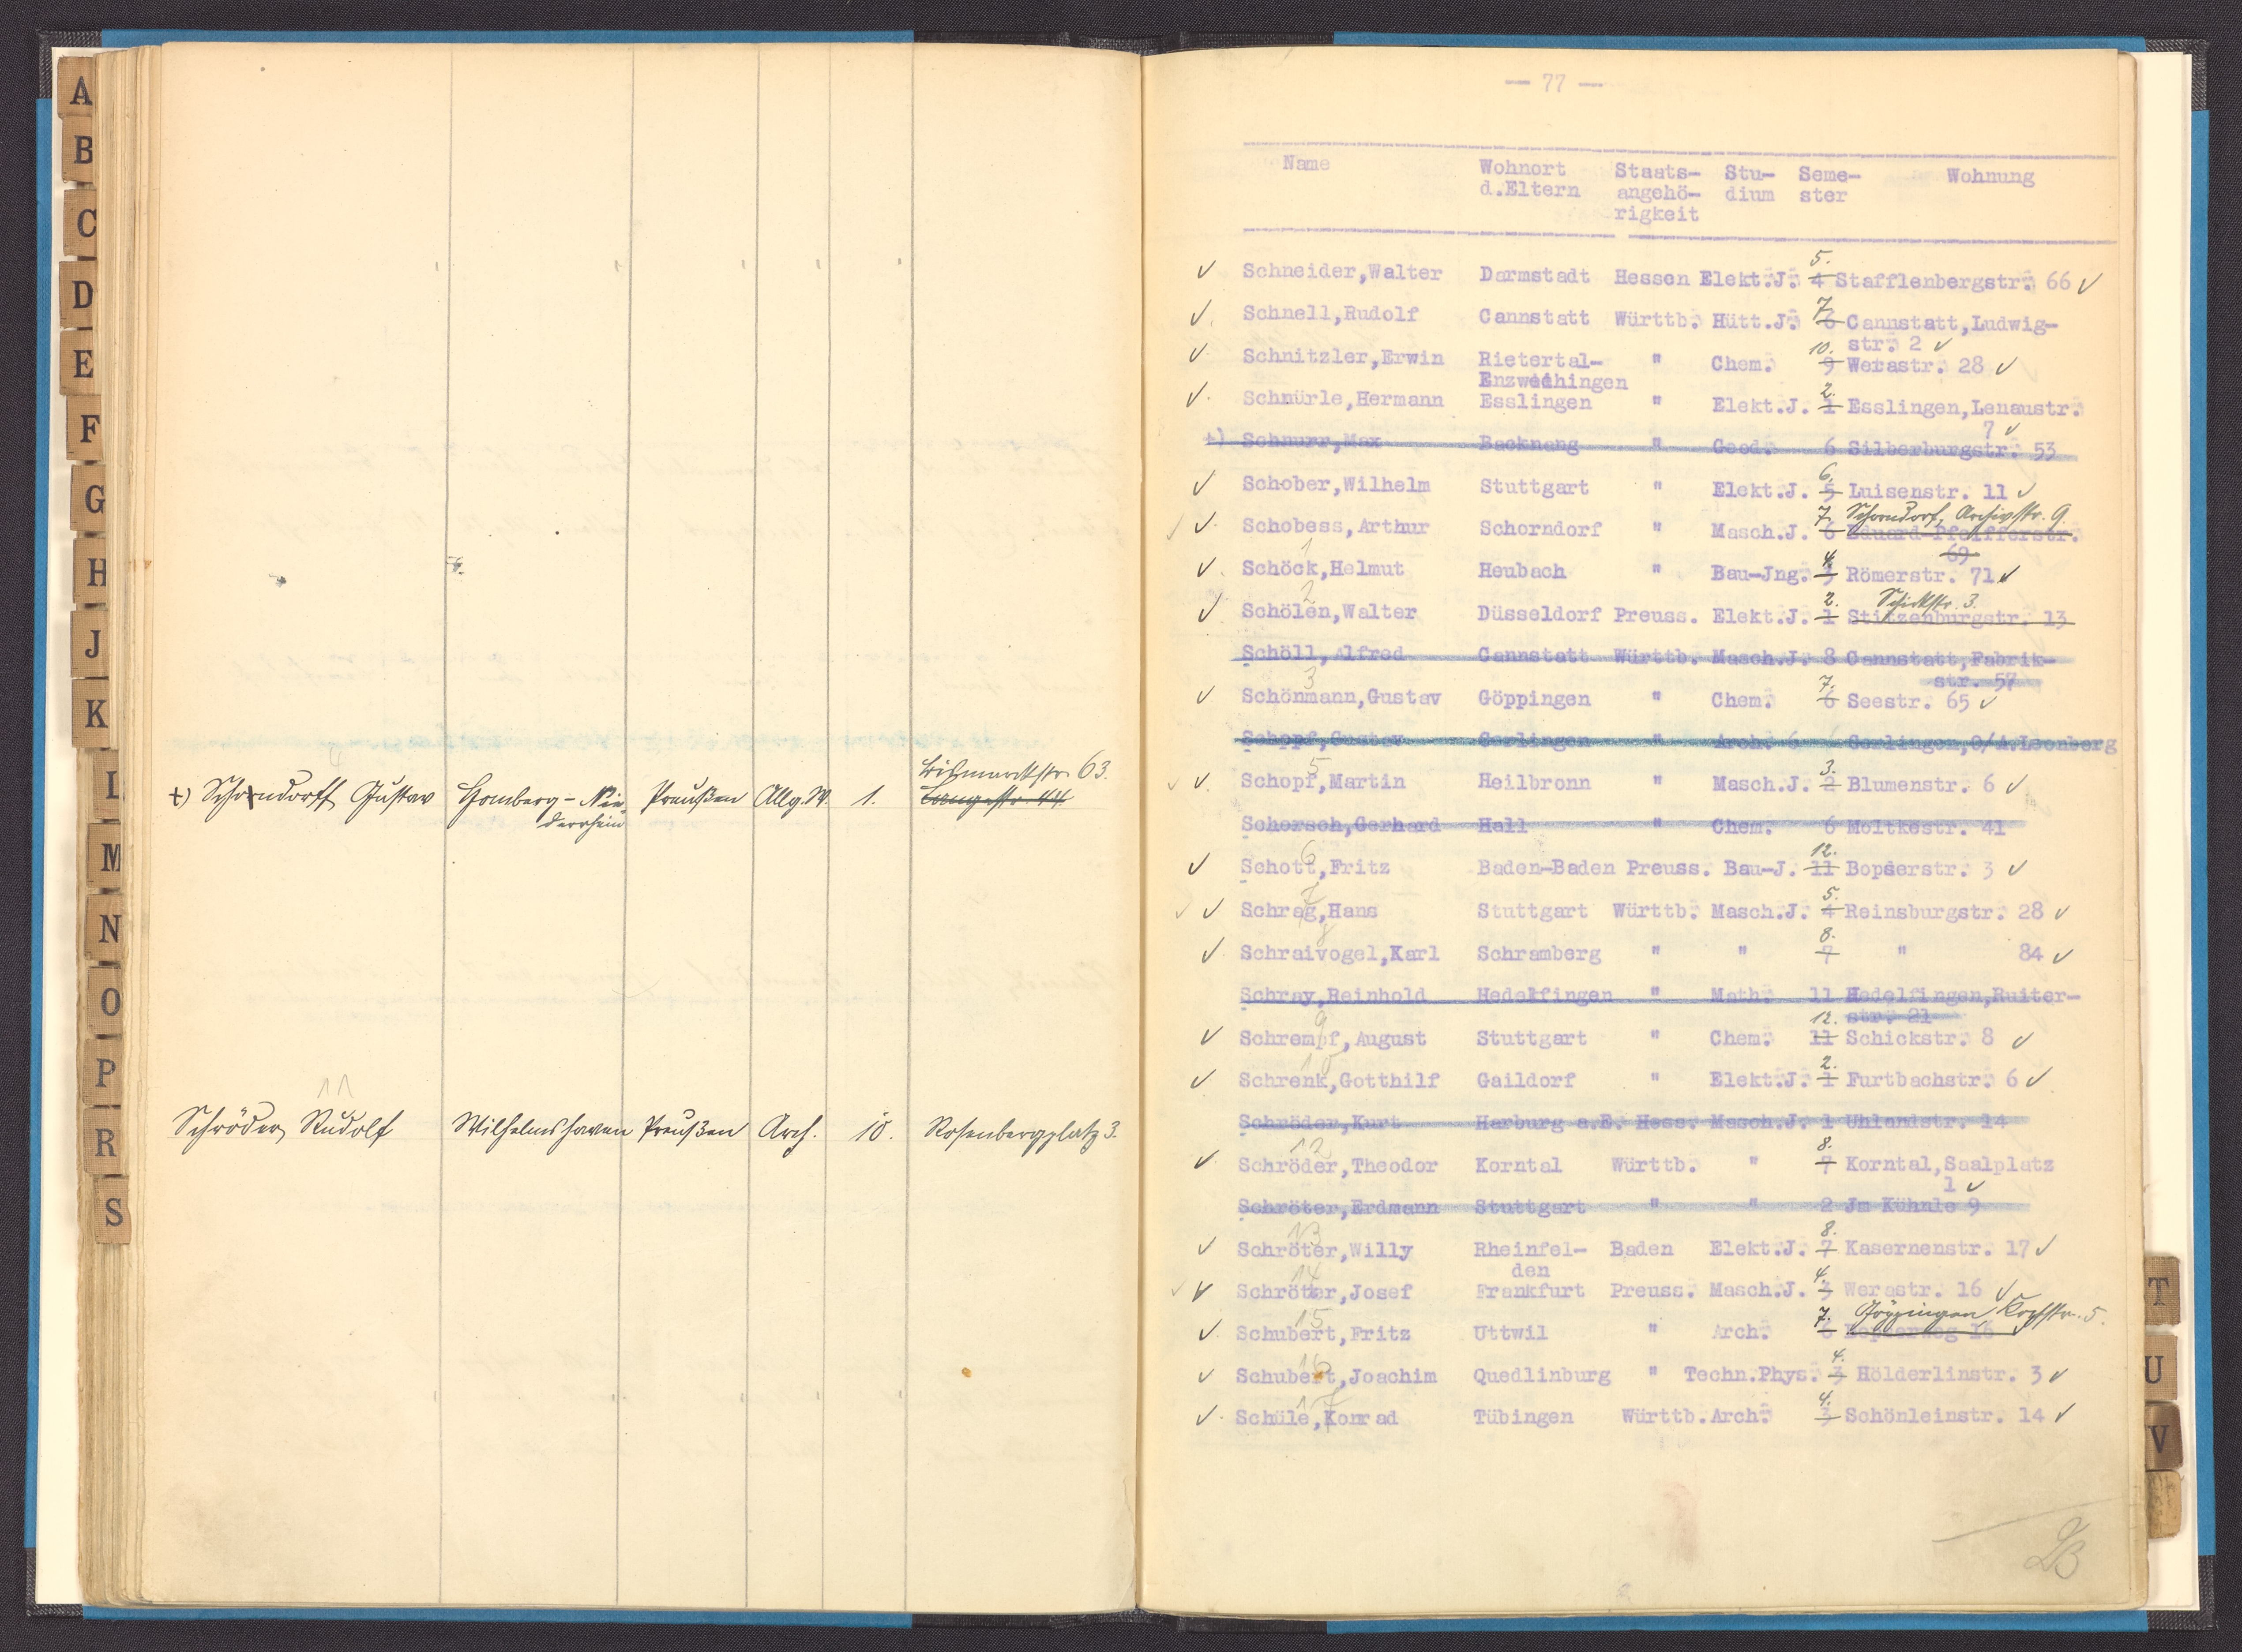 A
B
C
D
E
F
G
H
J
K
L
M
N
O
P
R
S
4
+) Schorndorff Gustav Homberg-Nie- Preußen Allg.W. 1. Bismarckstr. 63.
derrhein Langestr. 44
11
Schröder Rudolf Wilhelmshaven Preußen Arch. 10. Rosenbergplatz 3.
— 77 —
Name Wohnort Staats- Stu- Seme- Wohnung
d.Eltern angehö- dium ster
rigkeit
5.
✓ Schneider,Walter Darmstadt Hessen Elekt.J. 4 Stafflenbergstr. 66 ✓
7.
✓ Schnell,Rudolf Cannstatt Württb. Hütt.J. 6 Cannstatt,Ludwig-
10. str. 2 ✓
✓ Schnitzler,Erwin Rietertal- " Chem. 9 Werastr. 28 ✓
Enzweihingen
2.
✓ Schnürle,Hermann Esslingen " Elekt.J. 1 Esslingen,Lenaustr.
7 ✓
+) Schnurr,Max Backnang " Geod. 6 Silberburgstr. 53
6.
✓ Schober,Wilhelm Stuttgart " Elekt.J. 5 Luisenstr. 11 ✓
7. Schorndorf, Archivstr. 9.
✓ ✓ Schobess,Arthur Schorndorf " Masch.J. 6 Eduard-Pfeifferstr.
1 69
4.
✓ Schöck,Helmut Heubach " Bau-Jng. 3 Römerstr. 71 ✓
2 2. Schickstr. 3.
✓ Schölen,Walter Düsseldorf Preuss. Elekt.J. 1 Stitzenburgstr. 13
Schöll,Alfred Cannstatt Württb. Masch.J. 8 Cannstatt,Fabrik-
3 7. str. 57
✓ Schönmann,Gustav Göppingen " Chem. 6 Seestr. 65 ✓
Schopf,Gustav Gerlingen " Arch. 6 Gerlingen,O/A.Leonberg
5 3.
✓ ✓ Schopf,Martin Heilbronn " Masch.J. 2 Blumenstr. 6 ✓
Schorsch,Gerhard Hall " Chem. 6 Moltkestr. 41
6 12.
✓ Schott,Fritz Baden-Baden Preuss. Bau-J. 11 Bopserstr. 3 ✓
7 5.
✓ ✓ Schrag,Hans Stuttgart Württb. Masch.J. 4 Reinsburgstr. 28 ✓
8 8.
✓ Schraivogel,Karl Schramberg " " 7 " 84 ✓
Schray,Reinhold Hedelfingen " Math. 11 Hedelfingen,Ruiter-
9 12. str. 21
✓ Schrempf,August Stuttgart " Chem. 11 Schickstr. 8 ✓
10 2.
✓ Schrenk,Gotthilf Gaildorf " Elekt.J. 1 Furtbachstr. 6 ✓
Schröder,Kurt Harburg a.E. Hess. Masch.J. 1 Uhlandstr. 14
12 8.
✓ Schröder,Theodor Korntal Württb. " 7 Korntal,Saalplatz
1 ✓
Schröter,Erdmann Stuttgart " " 2 Jm Kühnle 9
13 8.
✓ Schröter,Willy Rheinfel- Baden Elekt.J. 7 Kasernenstr. 17 ✓
den
14 4.
✓ ✓ Schröter,Josef Frankfurt Preuss. Masch.J. 3 Werastr. 16 ✓
15 7. Göppingen, Kochstr. 5.
✓ Schubert,Fritz Uttwil " Arch. 6 Bopserweg 16
16 4.
✓ Schubert,Joachim Quedlinburg " Techn.Phys. 3 Hölderlinstr. 3 ✓
17 4.
✓ Schüle,Konrad Tübingen Württb. Arch. 3 Schönleinstr. 14 ✓
T
U
V